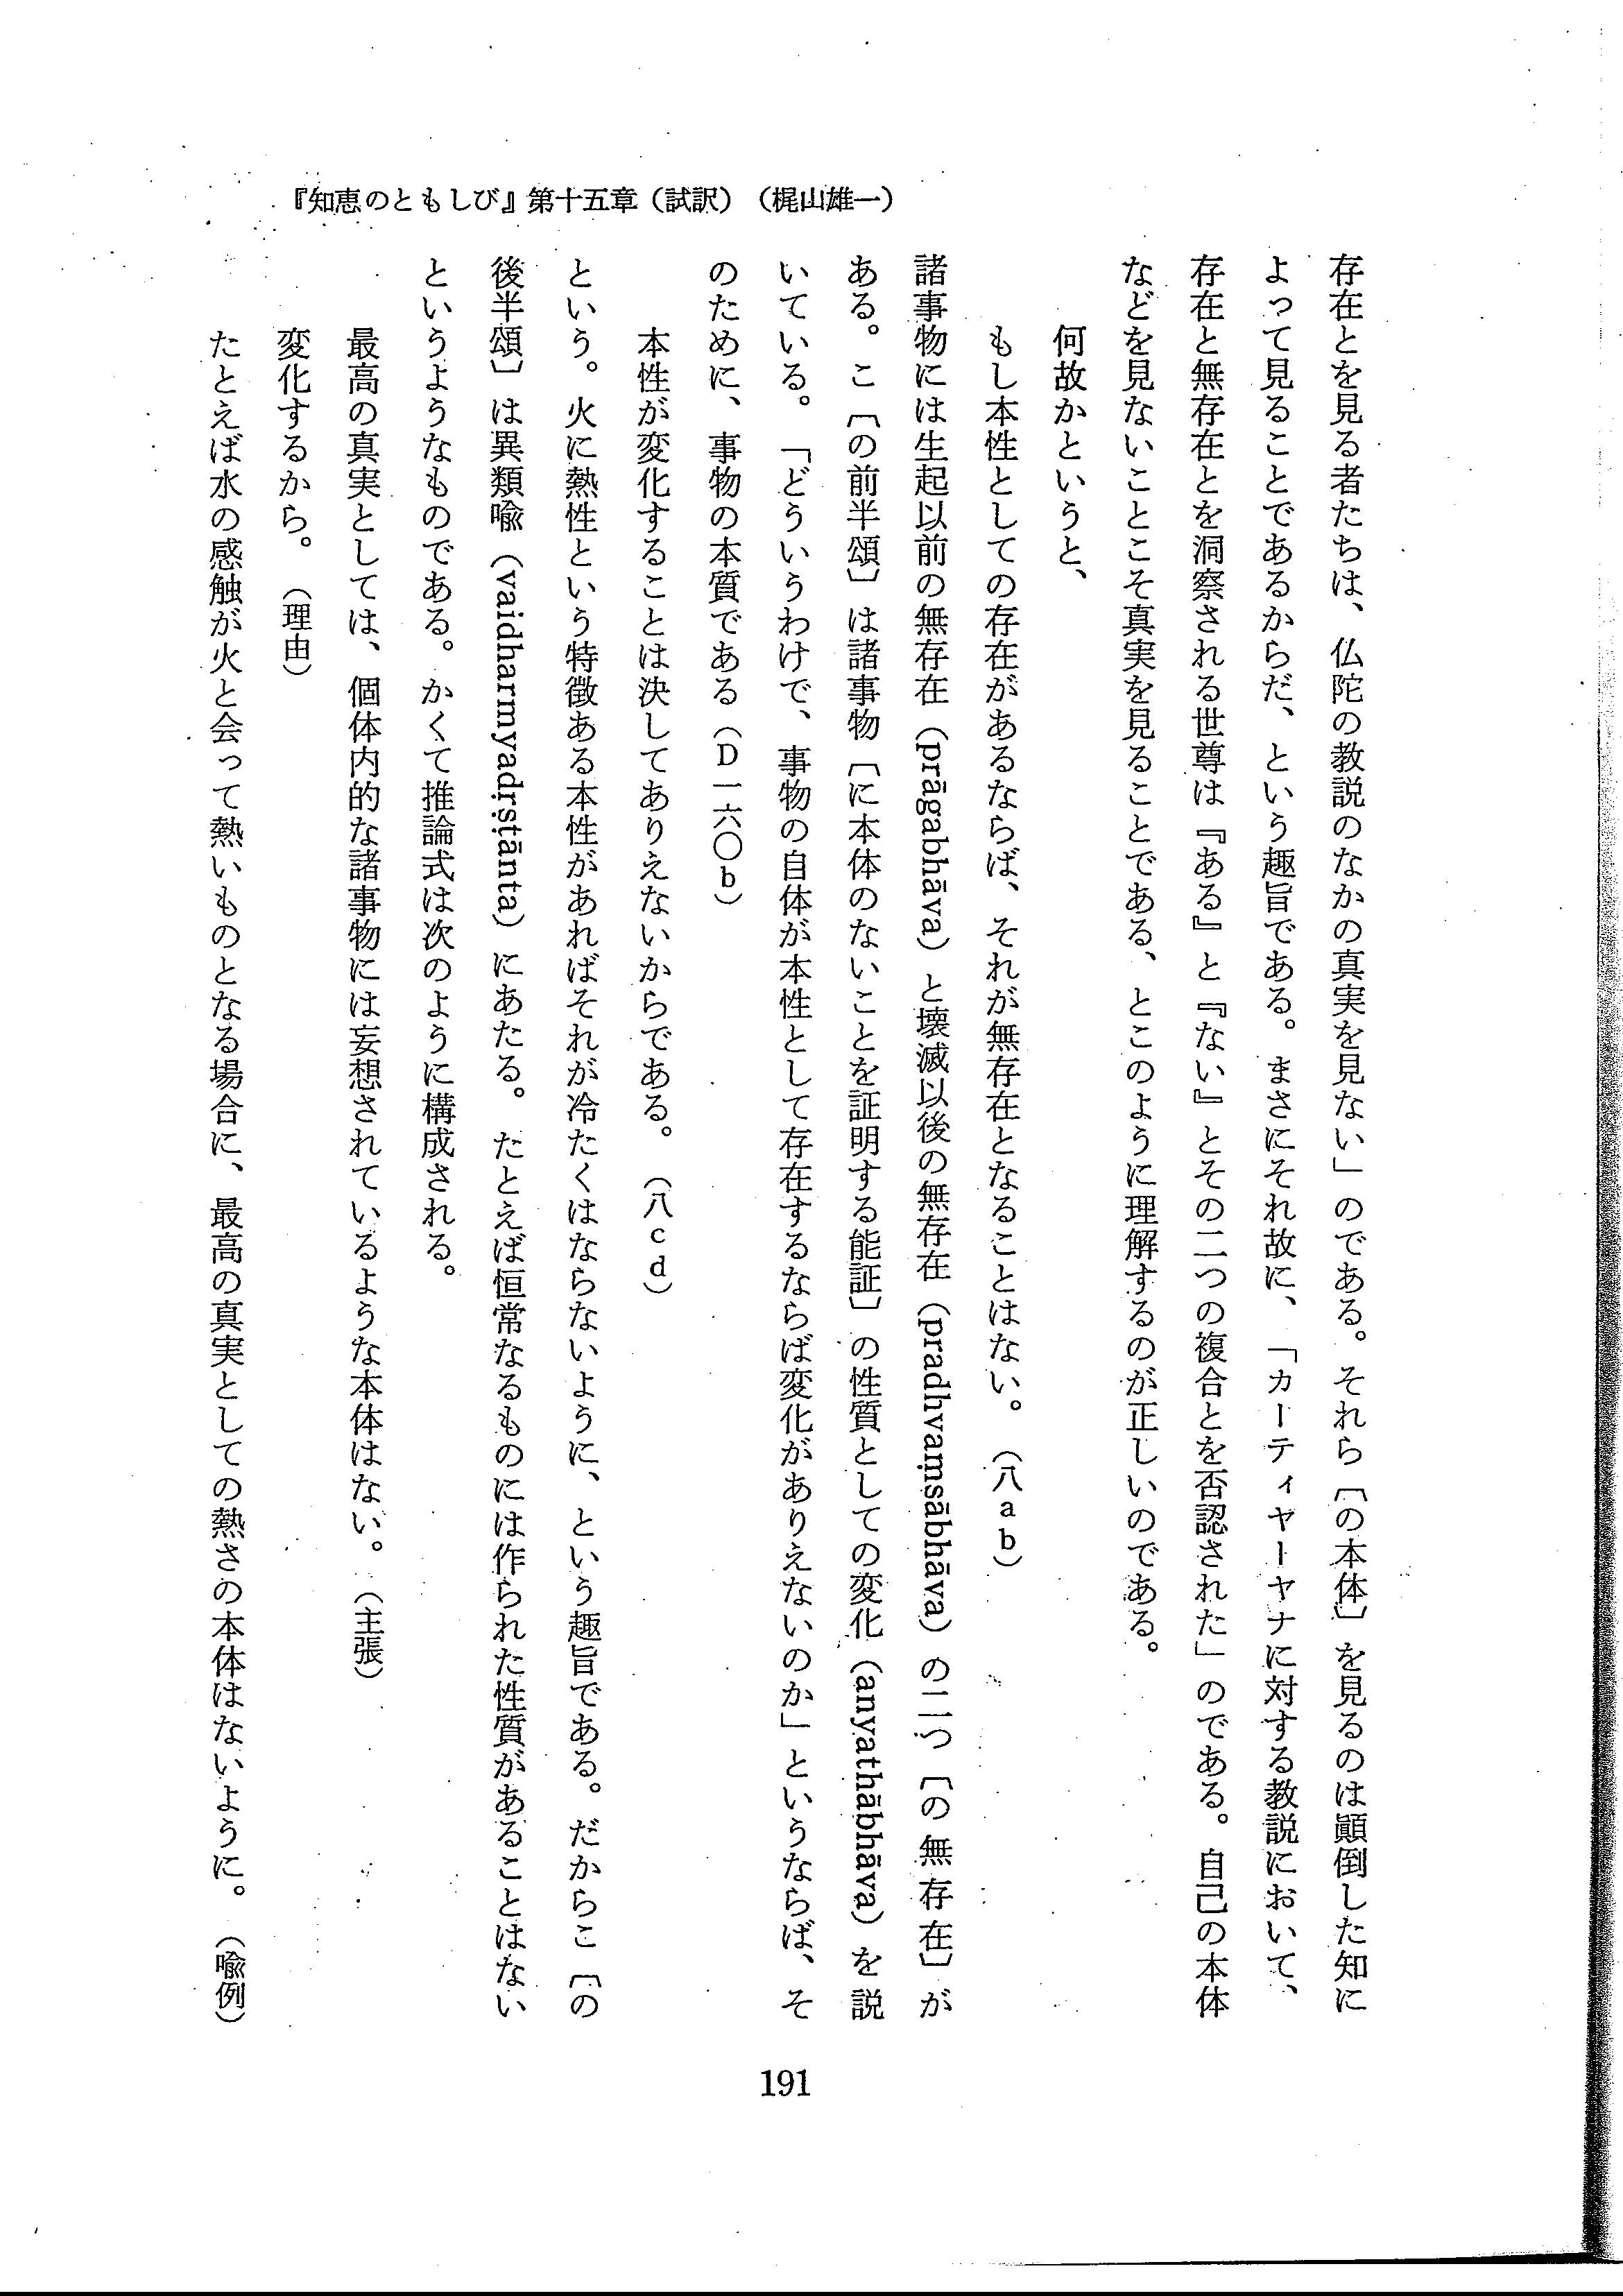 『知恵のともしび』第十五章（試訳）（梶山雄一）
存在とを見る者たちは、仏陀の教説のなかの真実を見ない」のである。それら〔の本体〕を見るのは顚倒した知に
よって見ることであるからだ、という趣旨である。まさにそれ故に、「カーティヤーヤナに対する教説において、
存在と無存在とを洞察される世尊は『ある』と『ない』とその二つの複合とを否認された」のである。自己の本体
などを見ないことこそ真実を見ることである、とこのように理解するのが正しいのである。
何故かというと、
もし本性としての存在があるならば、それが無存在となることはない。（八ａｂ）
諸事物には生起以前の無存在（prāgabhāva）と壊滅以後の無存在（pradhvaṃsābhāva）の二つ〔の無存在〕が
ある。こ〔の前半頌〕は諸事物〔に本体のないことを証明する能証〕の性質としての変化（anyathābhāva）を説
いている。「どういうわけで、事物の自体が本性として存在するならば変化がありえないのか」というならば、そ
のために、事物の本質である（Ｄ一六〇ｂ）
本性が変化することは決してありえないからである。（八ｃｄ）
という。火に熱性という特徴ある本性があればそれが冷たくはならないように、という趣旨である。だからこ〔の
後半頌〕は異類喩（vaidharmyadṛṣṭānta）にあたる。たとえば恒常なるものには作られた性質があることはない
というようなものである。かくて推論式は次のように構成される。
最高の真実としては、個体内的な諸事物には妄想されているような本体はない。（主張）
変化するから。（理由）
たとえば水の感触が火と会って熱いものとなる場合に、最高の真実としての熱さの本体はないように。（喩例）
191